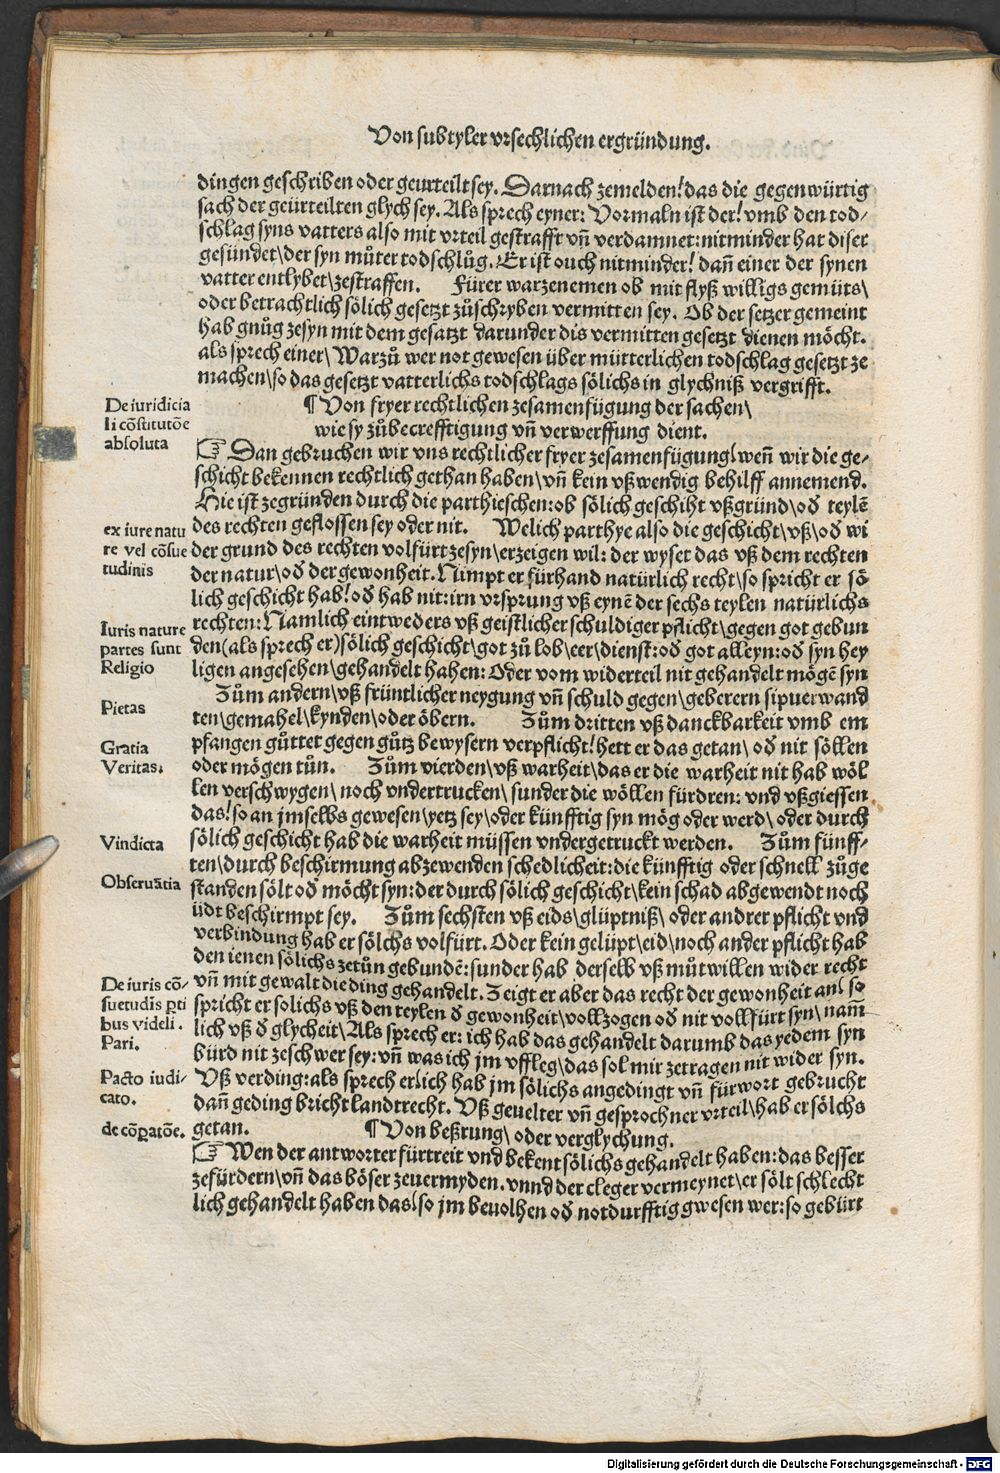 Von subtyler vrsechlichen ergründung.
dingen geschriben oder geurteilt sey. Darnach zemelden! das die gegenwürtig
sach der geürteilten glych sey. Als sprech eyner: Vormaln ist der! vmb den tod/
schlag syns vatters also mit vrteil gestrafft vñ verdamnet: nitminder hat diser
gesündet\ der syn můter todschlůg. Er ist ouch nitminder! dañ einer der synen
vatter entlybet\ zestraffen. Fürer warzenemen ob mit flyß willigs gemüts\
oder betrachtlich sölich gesetzt zůschryben vermitten sey. Ob der setzer gemeint
hab gnůg zesyn mit dem gesatzt darunder dis vermitten gesetzt dienen möcht.
als sprech einer\ Warzů wer not gewesen über můtterlichen todschlag gesetzt ze
machen\ so das gesetzt vatterlichs todschlags sölichs in glychniß vergrifft.
De iuridicia
li cõstitutõe
absoluta
¶ Von fryer rechtlichen zesamenfügung der sachen\
wie sy zůbecrefftigung vñ verwerffung dient.
☞ Dan gebruchen wir vns rechtlicher fryer zesamenfügung! weñ wir die ge/
schicht bekennen rechtlich gethan haben\ vñ kein vßwendig behilff annemend.
Hie ist zegründen durch die parthieschen: ob sölich geschiht vßgründ\ oď teylē
ex iure natu
re vel cõsue
tudinis
des rechten geflossen sey oder nit. Welich parthye also die geschicht\ vß\ oď wi
der grund des rechten volfürt zesyn\ erzeigen wil: der wyset das vß dem rechten
der natur\ oď der gewonheit. Nimpt er fürhand natürlich recht\ so spricht er sö
lich geschicht hab! oď hab nit: irn vrsprung vß eynē der sechs teylen natürlichs
Iuris nature
partes sunt
Religio
rechten: Namlich eintweders vß geistlicher schuldiger pflicht\ gegen got gebun
den (als sprech er) sölich geschicht\ got zů lob\ eer\ dienst: oď got alleyn: oď syn hey
ligen angesehen\ gehandelt haben: Oder vom widerteil nit gehandelt mögē syn
Pietas
Zům andern\ vß früntlicher neygung vñ schuld gegen\ geberern sipuerwand
ten\ gemahel\ kynden\ oder öbern. Zům dritten vß danckbarkeit vmb em
Gratia
Veritas.
pfangen gůttet gegen gůtz bewysern verpflicht! hett er das getan\ oď nit söllen
oder mögen tůn. Zům vierden\ vß warheit\ das er die warheit nit hab wöl
len verschwygen\ noch vndertrucken\ sunder die wöllen fürdren: vnd vßgiessen
das! so an jmselbs gewesen\ yetz sey\ oder künfftig syn mög oder werd\ oder durch
Vindicta
sölich geschicht hab die warheit müssen vndergetruckt werden. Zům fünff/
ten\ durch beschirmung abzewenden schedlicheit: die künfftig oder schnell zůge
Obseruãtia
standen sölt oď möcht syn: der durch sölich geschicht\ kein schad abgewendt noch
üdt beschirmpt sey. Zům sechsten vß eids\ glüptniß\ oder andrer pflicht vnd
verbindung hab er sölchs volfürt. Oder kein gelüpt\ eid\ noch ander pflicht hab
den ienen sölichs zetůn gebundē: sunder hab derselb vß můtwillen wider recht
De iuris cõ/
suetudis ꝑti
bus videli.
Pari.
vñ mit gewalt die ding gehandelt. Zeigt er aber das recht der gewonheit an! so
spricht er solichs vß den teylen ď gewonheit\ vollzogen oď nit vollfürt syn\ nam̃
lich vß ď glycheit\ Als sprech er: ich hab das gehandelt darumb das yedem syn
bürd nit zeschwer sey: vñ was ich jm vffleg\ das sol mir zetragen nit wider syn.
Pacto iudi/
cato.
Vß verding: als sprech er! ich hab jm sölichs angedingt vñ fürwort gebrucht
dañ geding bricht landtrecht. Vß geuelter vñ gesprochner vrteil\ hab er sölchs
de cõꝑatõe.
getan. ¶ Von beßrung\ oder verglychung.
☞ Wen der antworter fürtreit vnd bekent sölichs gehandelt haben: das besser
zefürdern\ vñ das böser zeuermyden. vnnd der cleger vermeynet\ er sölt schlecht
lich gehandelt haben das! so jm beuolhen oď notdurfftig gwesen wer: so gebürt
Digitalisierung gefördert durch die Deutsche Forschungsgemeinschaft - DFG